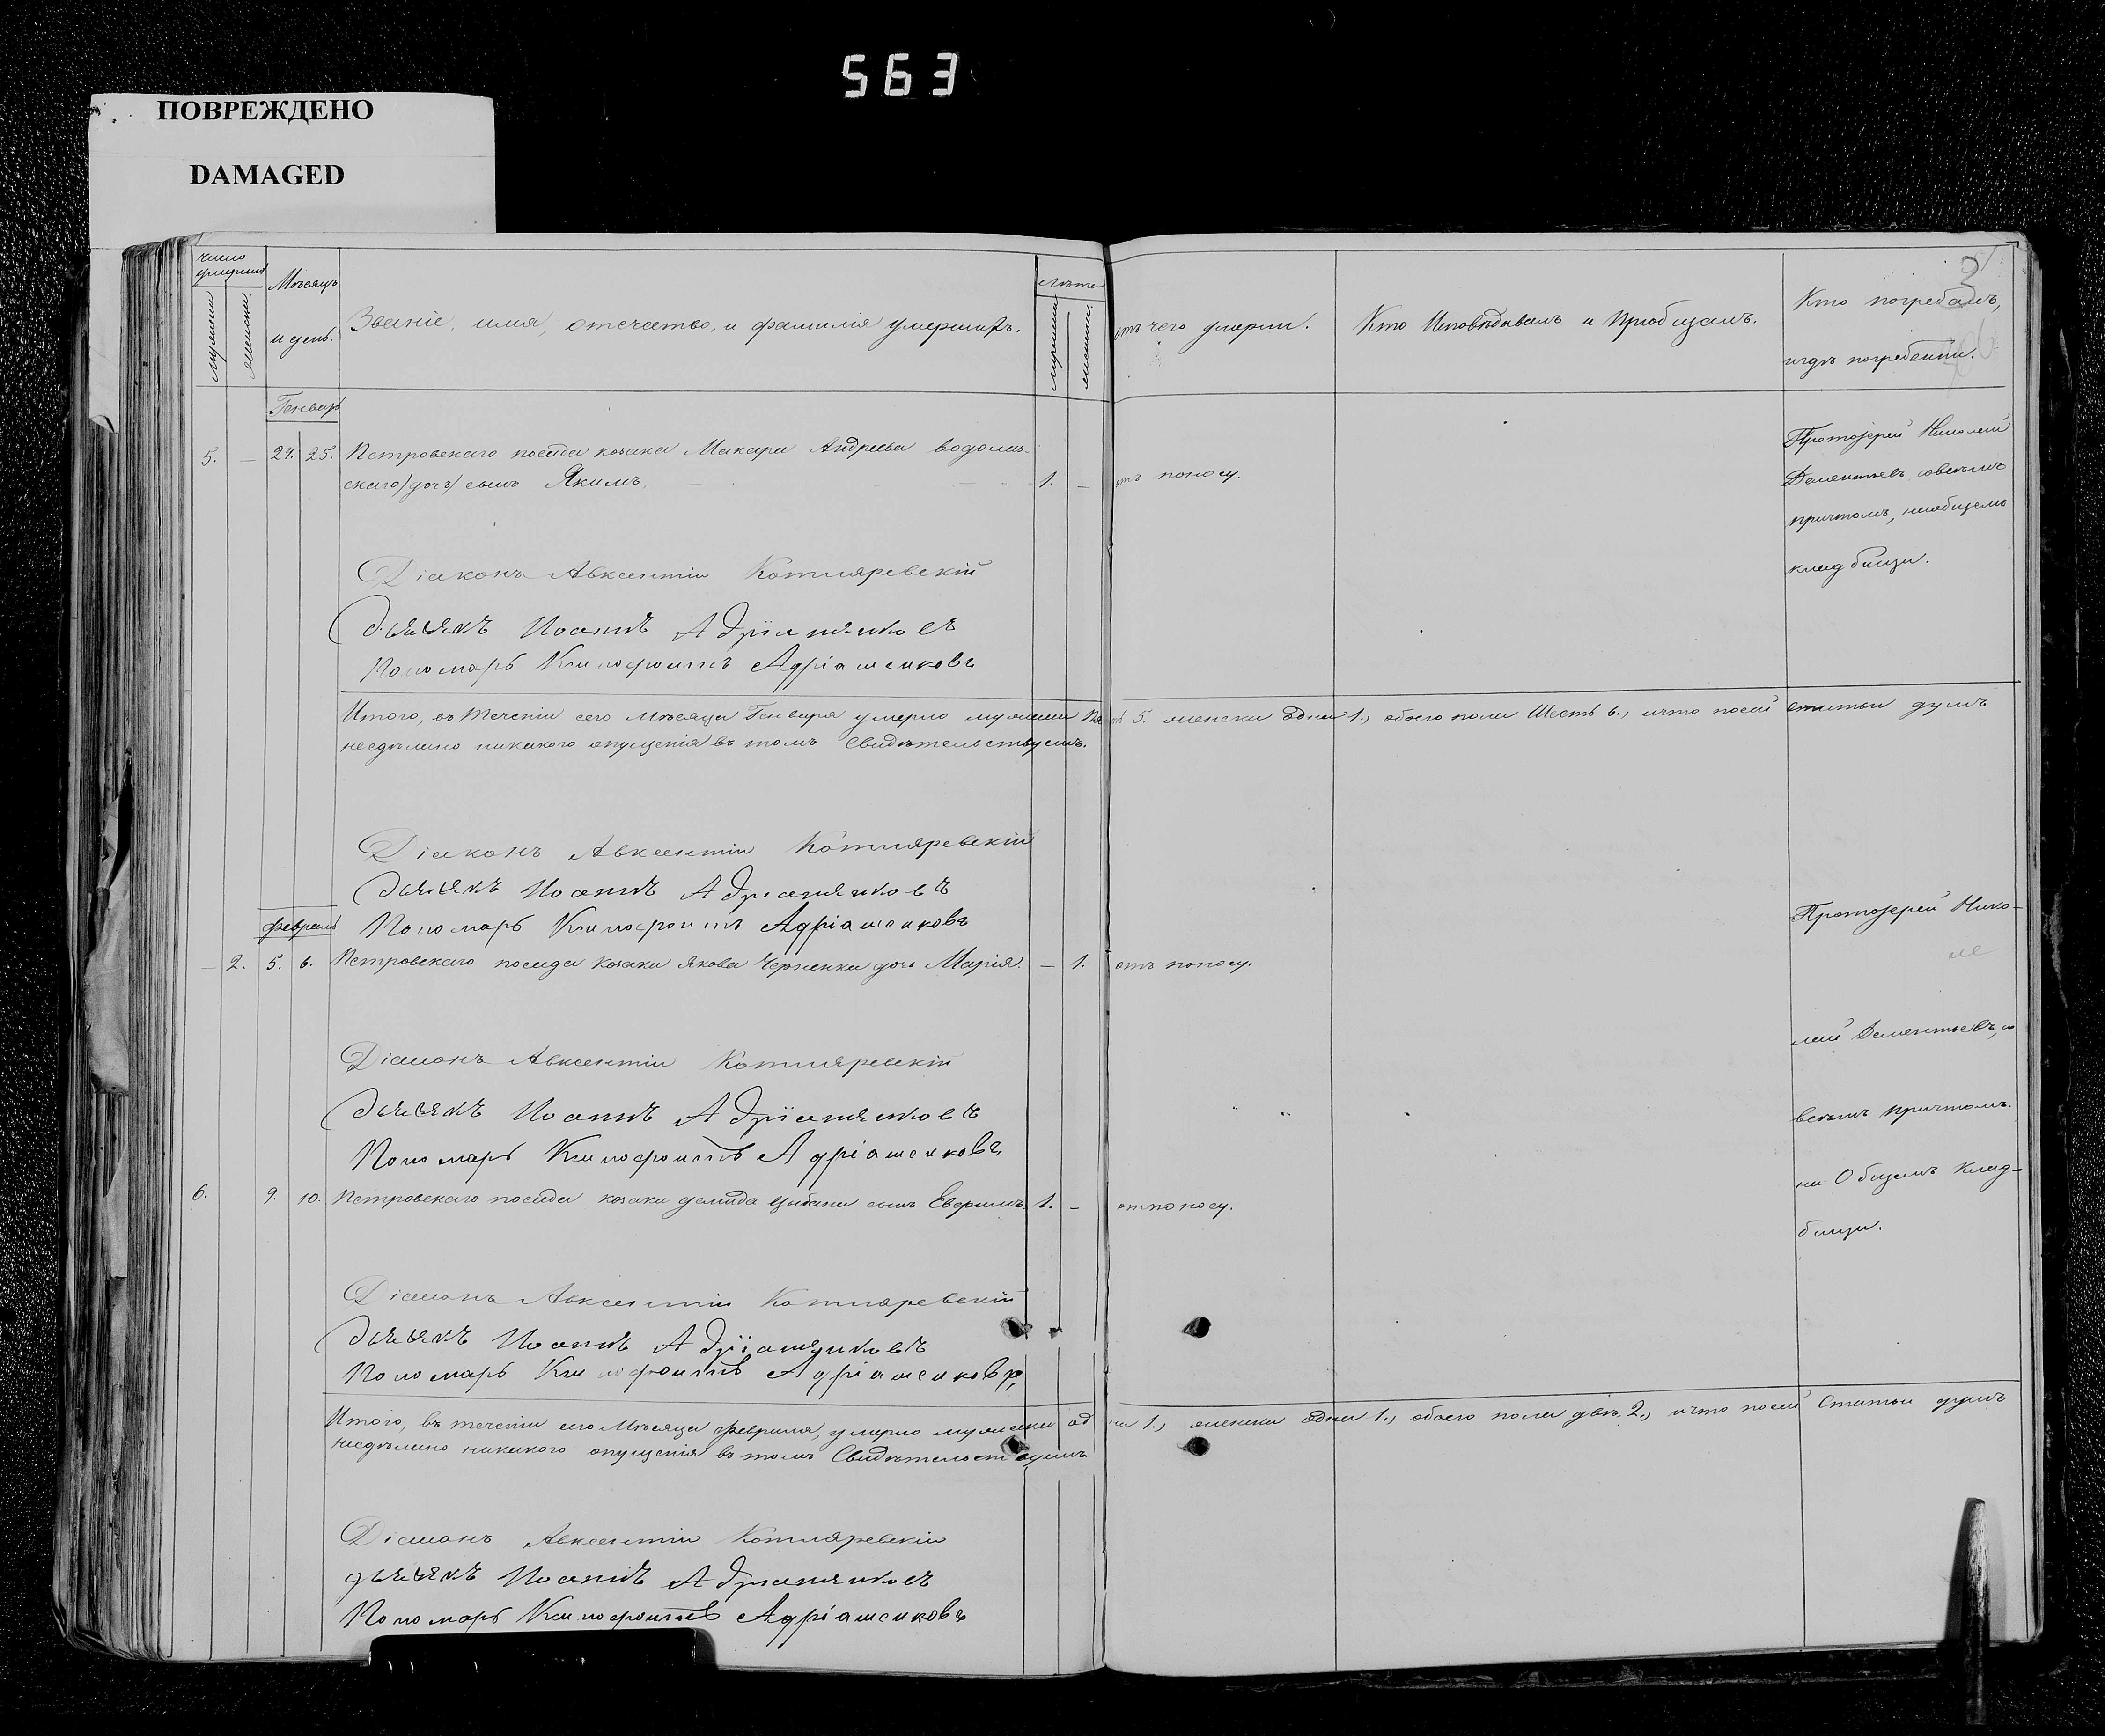 563
ПОВРЕЖДЕНО
DAMAGED
число умершихъ
мужеска
женска
Мѣсяцъ и день.
Званіе, имя, отечество, и фамилія умершихъ.
лѣта
мужеска
женска
отъ чего умерли.
Кто Исповѣдывалъ и Пріобщалъ.
Кто погребалъ,
и гдѣ погребены.
3
Генварь
5. — 24. 25. Петровскаго посада козака Макара Андреева водолаж-
скаго /дочь/ сынъ Якимъ. 1. — отъ поносу.
Протоіерей Николай
Дементьевъ совсѣмъ
причтомъ, наобщемъ
кладбищи.
Діаконъ Авксентій Котляревскій
дьячекъ Иоаннъ Адріашенковъ
Пономарь Ксенофонтъ Адріашенковъ
Итого, въ теченіи сего Мѣсяца Генваря умерло мужеска пять 5. женска одна 1., обоего пола Шесть 6., ичто посей статьи душъ
несдѣлано никакого опущенія въ томъ Свидѣтельствуемъ.
Діаконъ Авксентій Котляревскій
дьячекъ Иоаннъ Адріашенковъ
Пономарь Ксенофонтъ Адріашенковъ
февраль
— 2. 5. 6. Петровскаго посада козака Якова Черненка дочь Марія. — 1. отъ поносу.
Протоіерей Нико-
лай Дементьевъ, со
всѣмъ причтомъ.
на Общемъ клад-
бищи.
Діаконъ Авксентій Котляревскій
дьячекъ Иоаннъ Адріашенковъ
Пономарь Ксенофонтъ Адріашенковъ
6. 9. 10. Петровскаго посада козака демида Цыбана сынъ Евфимъ. 1. — отъ поносу.
Діаконъ Авксентій Котляревскій
дьячекъ Иоаннъ Адріашенковъ
Пономарь Ксенофонтъ Адріашенковъ
Итого, въ теченіи сего Мѣсяца февраля, умерло мужеска одна 1., женска одна 1., обоего пола двѣ 2., ичто посей Статьи душъ
несдѣлано никакого опущенія въ томъ Свидѣтельствуемъ
Діаконъ Авксентій Котляревскій
дьячекъ Иоаннъ Адріашенковъ
Пономарь Ксенофонтъ Адріашенковъ